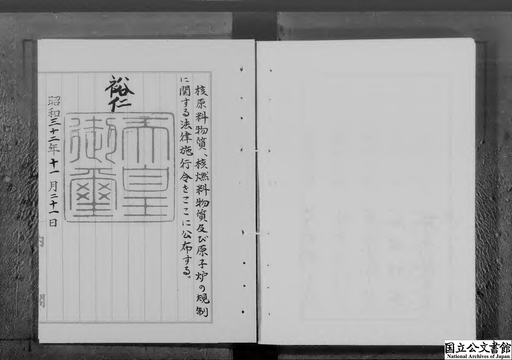 核原料物質、核燃料物質及び原子炉の規制
に関する法律施行令をここに公布する。
裕仁
天皇
御璽
昭和三十二年十一月二十一日
国立公文書館
National Archives of Japan